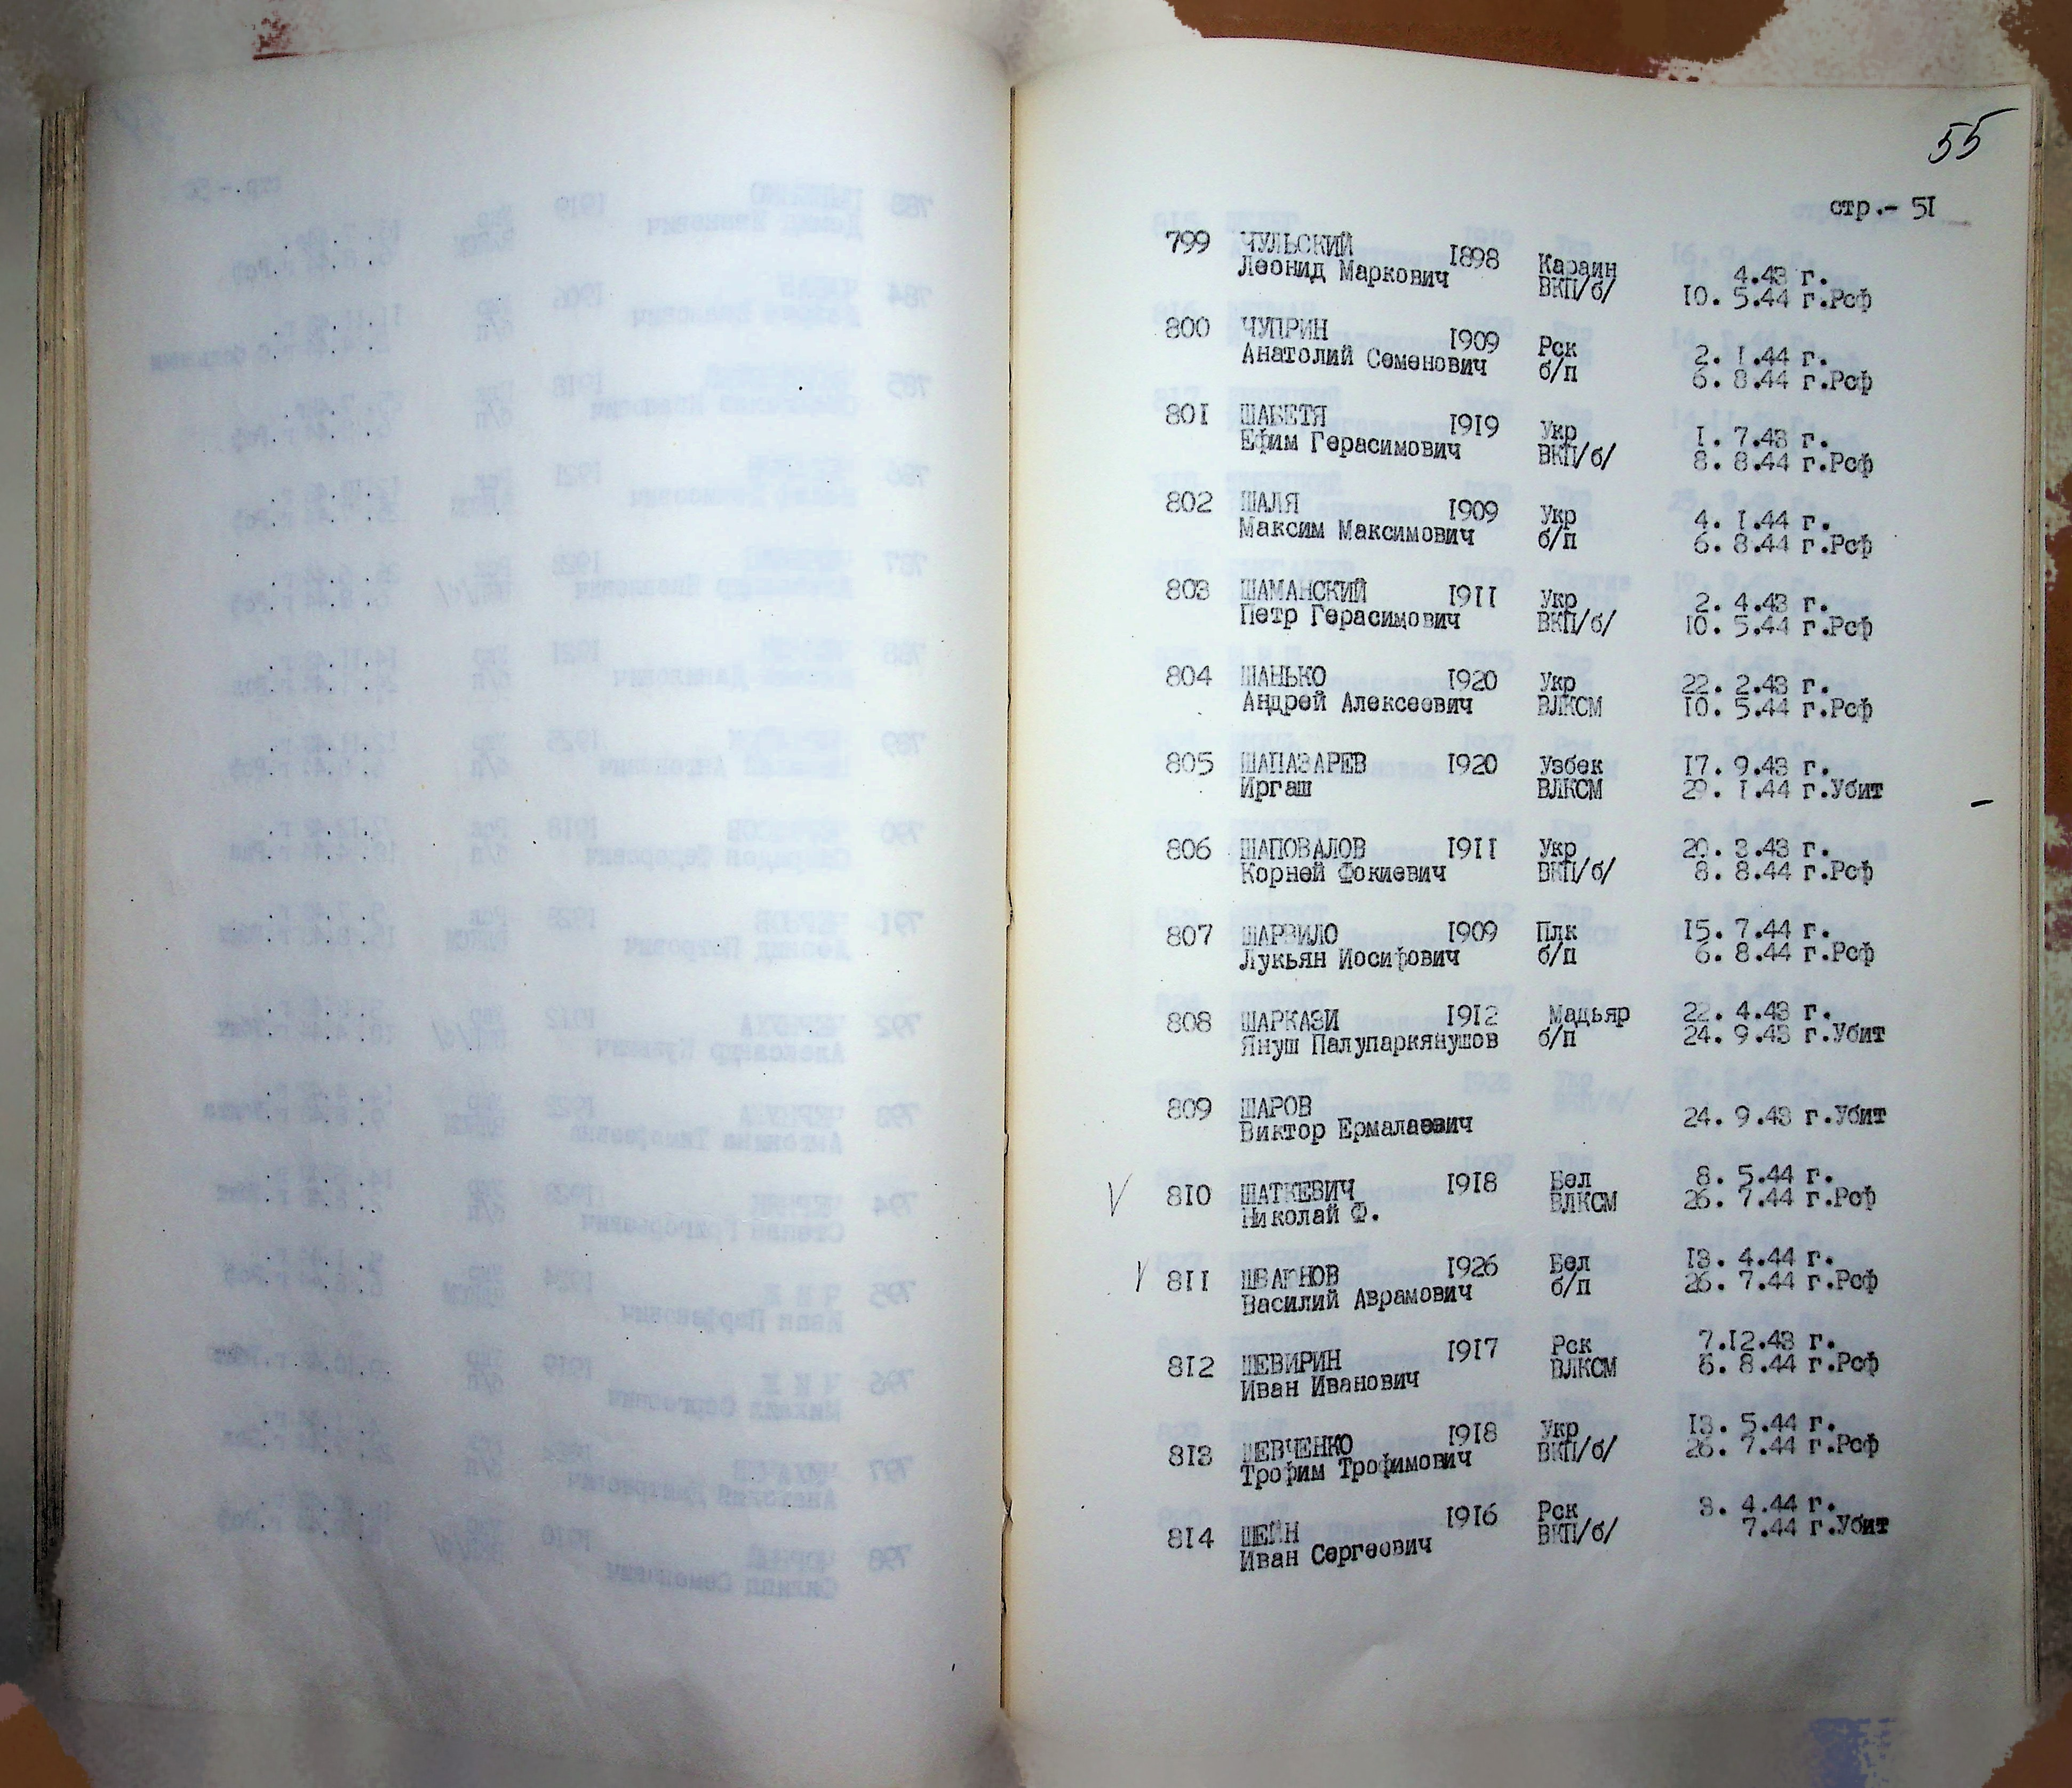 55
стр.- 51
799 ЧУЛЬСКИЙ 1898 Караим 4.43 г.
Леонид Маркович ВКП/б/ 10. 5.44 г.Рсф
800 ЧУПРИН 1909 Рск 2. 1.44 г.
Анатолий Семенович б/п 6. 8.44 г.Рсф
801 ШАБЕТЯ 1919 Укр 1. 7.43 г.
Ефим Герасимович ВКП/б/ 8. 8.44 г.Рсф
802 ШАЛЯ 1909 Укр 4. 1.44 г.
Максим Максимович б/п 6. 8.44 г.Рсф
803 ШАМАНСКИЙ 1911 Укр 2. 4.43 г.
Петр Герасимович ВКП/б/ 10. 5.44 г.Рсф
804 ШАНЬКО 1920 Укр 22. 2.43 г.
Андрей Алексеевич ВЛКСМ 10. 5.44 г.Рсф
805 ШАПАЗАРЕВ 1920 Узбек 17. 9.43 г.
Иргаш ВЛКСМ 29. 1.44 г.Убит
806 ШАПОВАЛОВ 1911 Укр 20. 3.43 г.
Корней Фокиевич ВКП/б/ 8. 8.44 г.Рсф
807 ШАРВИЛО 1909 Плк 15. 7.44 г.
Лукьян Иосифович б/п 6. 8.44 г.Рсф
808 ШАРКАЗИ 1912 Мадьяр 22. 4.43 г.
Януш Палупаркянушов б/п 24. 9.43 г.Убит
809 ШАРОВ
Виктор Ермалаевич 24. 9.43 г.Убит
810 ШАТКЕВИЧ 1918 Бел 8. 5.44 г.
Николай Ф. ВЛКСМ 26. 7.44 г.Рсф
811 ШВАГНОВ 1926 Бел 13. 4.44 г.
Василий Аврамович б/п 26. 7.44 г.Рсф
812 ШЕВИРИН 1917 Рск 7.12.43 г.
Иван Иванович ВЛКСМ 6. 8.44 г.Рсф
813 ШЕВЧЕНКО 1918 Укр 13. 5.44 г.
Трофим Трофимович ВКП/б/ 26. 7.44 г.Рсф
814 ШЕЙН 1916 Рск 3. 4.44 г.
Иван Сергеович ВКП/б/ 7.44 г.Убит